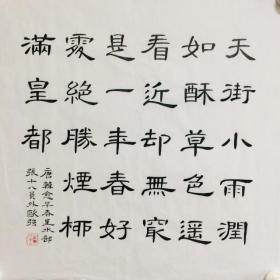 天街小雨潤
如酥草色遥
看近却無㝡
是一年春好
處絕勝煙柳
滿皇都
唐韓愈早春呈水部
張十八員外歐